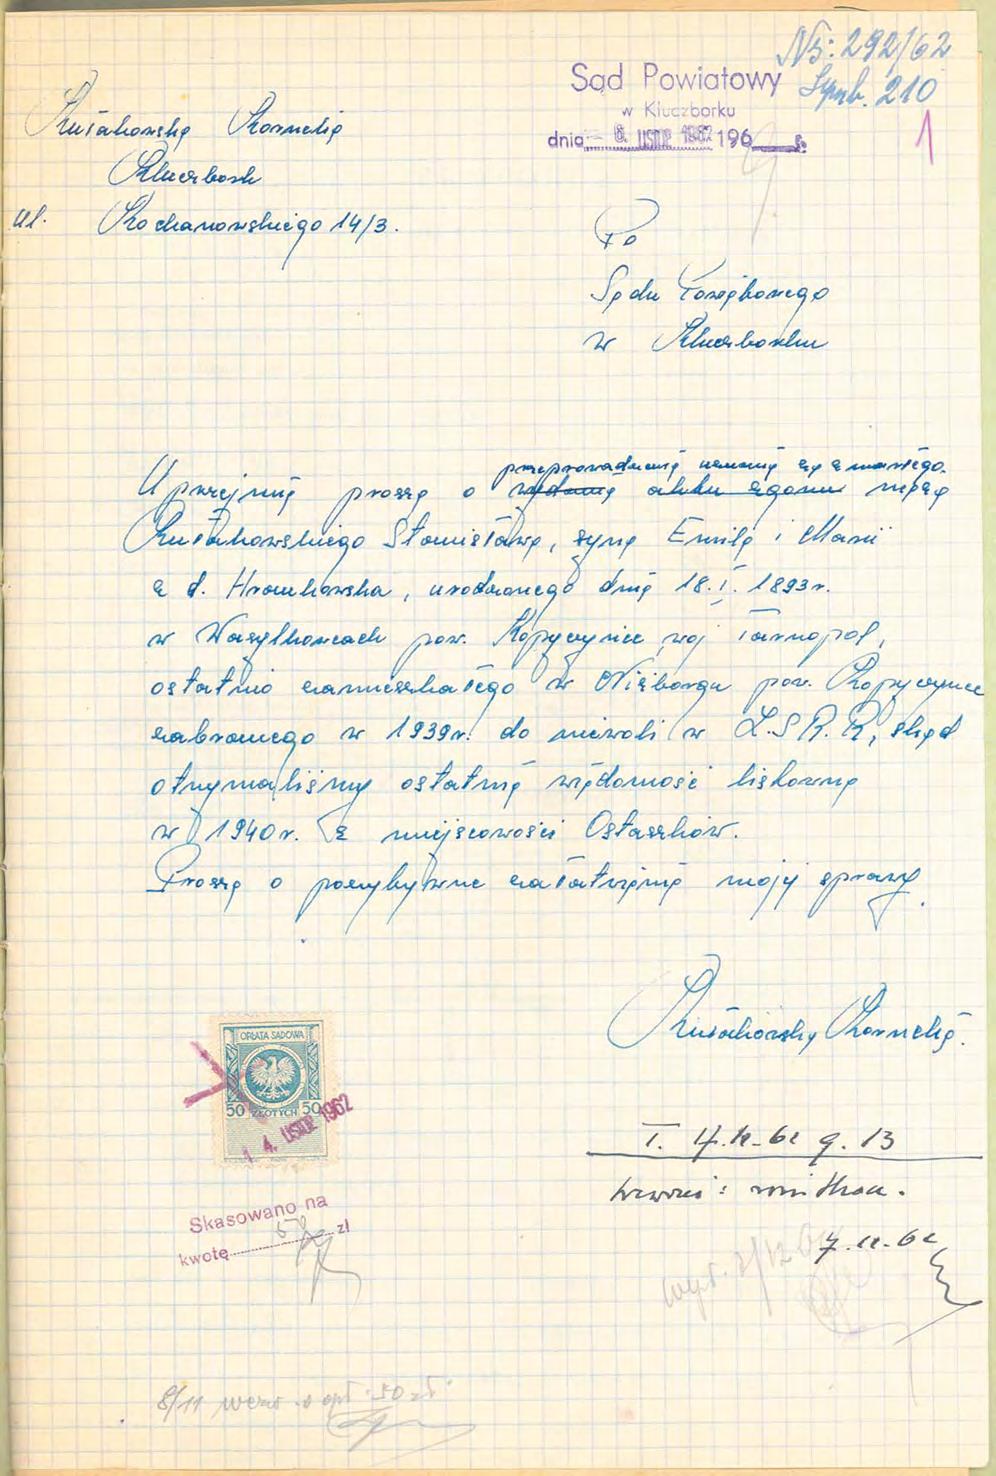 Ns: 292/62
Sąd Powiatowy
w Kluczborku
dnia 6. LISTOP. 1962 196
1
Kułakowska Kornelia
Kluczbork
ul. Kochanowskiego 14/3.
Do
Sądu Powiatowego
w Kluczborku
przeprowadzenie uznania za zmarłego.
Uprzejmie proszę o wydanie aktu zgonu męża
Kułakowskiego Stanisława, syna Emila i Marii
z d. Hrouchowska, urodzonego dnia 18.I.1893r.
w Wasylkowcach pow. Kopyczyńce, woj Tarnopol,
ostatnio zamieszkałego w Niżborgu pow. Kopyczyńce
zabranego w 1939r. do niewoli w Z.S.R.R, skąd
otrzymaliśmy ostatnią wiadomość listowną
w 1940r. z miejscowości Ostaszków.
Proszę o pozytywne załatwienie mojej sprawy.
Kułakowska Kornelia.
OPŁATA SĄDOWA
50 ZŁOTYCH 50
14. LISTOP. 1962
Skasowano na
kwotę 50 zł
g. 13
7.12.62
8/11 wezw. o opł. 50 zł.